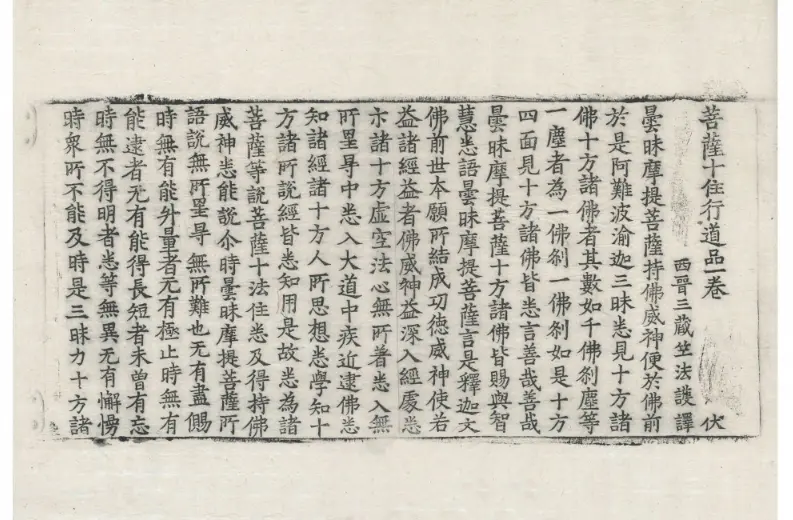 菩薩十住行道品一卷 伏
西晋三藏竺法護譯
曇昧摩提菩薩持佛威神便於佛前
於是阿難波渝迦三昧悉見十方諸
佛十方諸佛者其數如千佛刹塵等
一塵者為一佛刹一佛刹如是十方
四面見十方諸佛皆悉言善哉善哉
曇昧摩提菩薩十方諸佛皆賜與智
慧悉語曇昧摩提菩薩言是釋迦文
佛前世夲願所結成功徳威神使若
益諸經益者佛威神益深入經處悉
示諸十方虛空法心無所著悉入無
所罣㝵中悉入大道中疾近逮佛悉
知諸經諸十方人所思想悉學知十
方諸所說經皆悉知用是故悉為諸
菩薩等說菩薩十法住悉及得持佛
威神悉能說尒時曇昧摩提菩薩所
語說無所罣㝵無所難也无有盡賜
時無有能升量者无有極止時無有
能逮者无有能得長短者未曽有忘
時無不得明者悉等無異无有懈慢
時衆所不能及時是三昧力十方諸